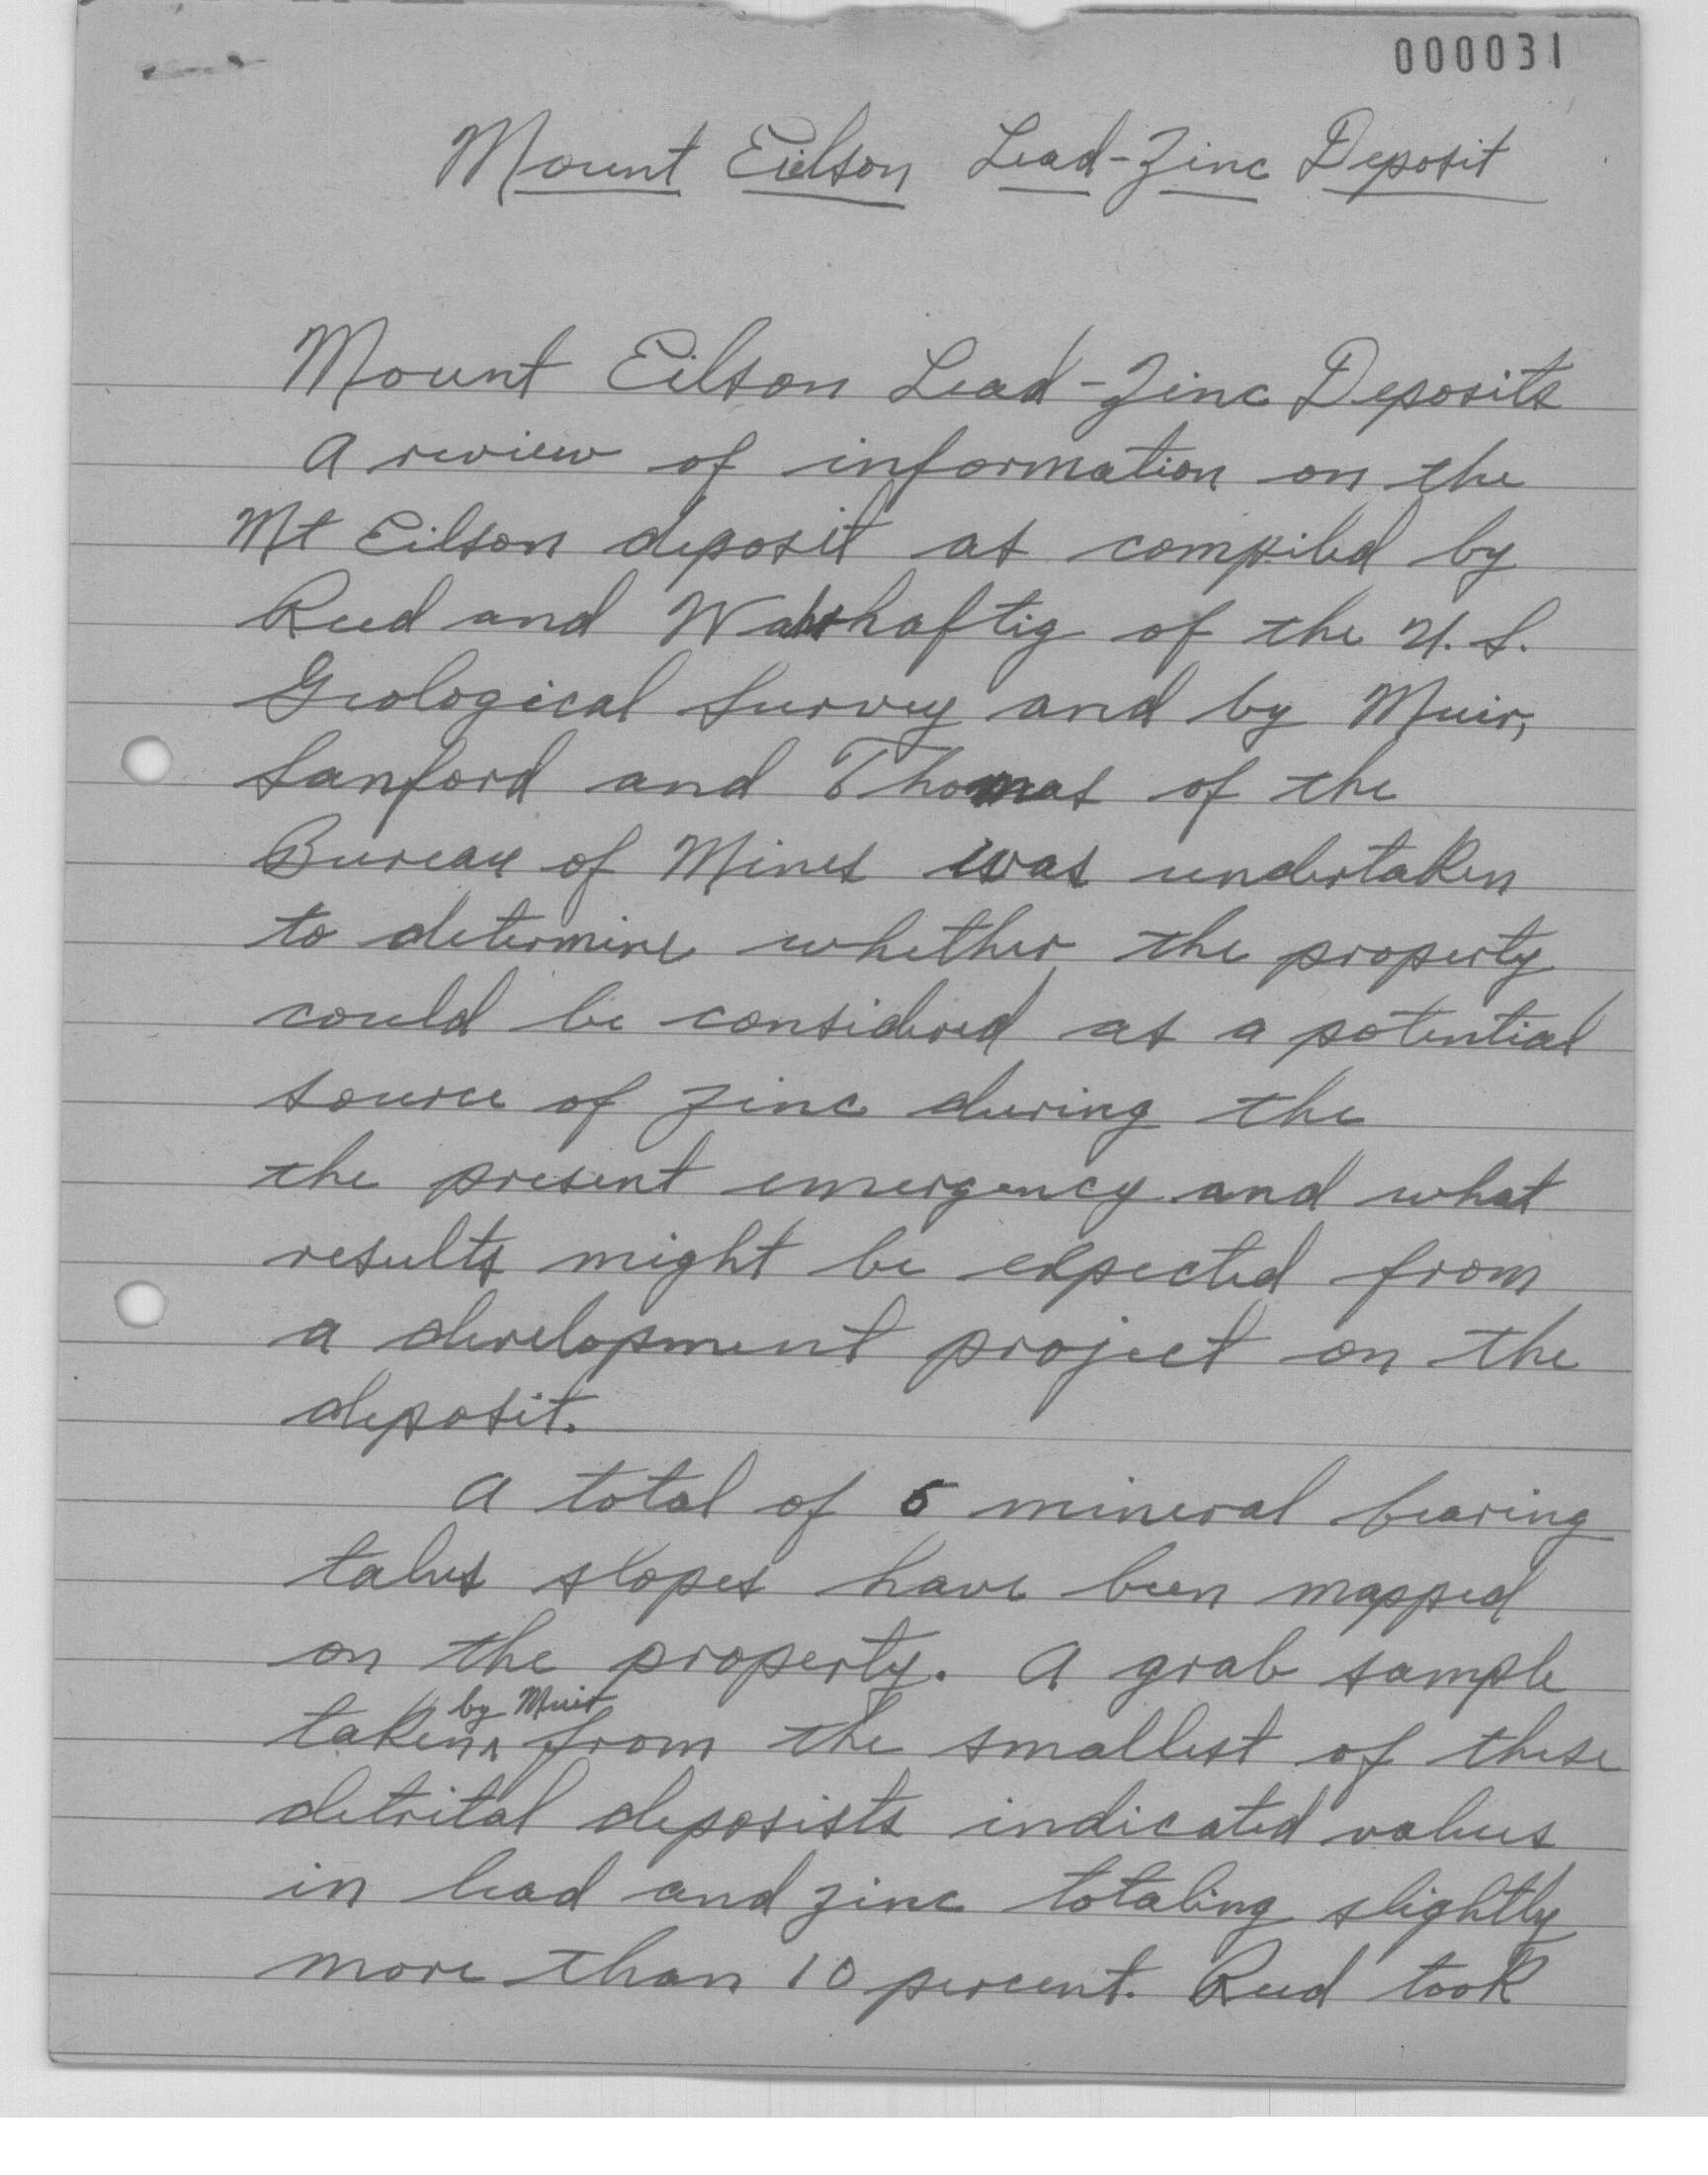 000031
Mount Eielson Lead-Zinc Deposit
Mount Eilson Lead-Zinc Deposits
A review of information on the
Mt Eilson deposit as compiled by
Reed and Wahrhaftig of the U.S.
Geological Survey and by Muir,
Sanford and Thomas of the
Bureau of Mines was undertaken
to determine whether the property
could be considered as a potential
source of zinc during the
the present emergency and what
results might be expected from
a development project on the
deposit.
A total of 5 mineral bearing
talus slopes have been mapped
on the property. A grab sample
by Muir
taken^ from the smallest of these
detrital deposists indicated values
in lead and zinc totaling slightly
more than 10 percent. Reed took